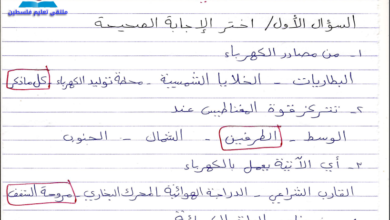 ملتقى تعليم فلسطين
السؤال الأول/ اختر الإجابة الصحيحة
١- من مصادر الكهرباء
البطاريات - الخلايا الشمسية - محطة توليد الكهرباء - كل ما ذكر
٢- تتركز قوة المغناطيس عند
الوسط - الطرفين - الشمال - الجنوب
٣- أي الآتية يعمل بالكهرباء
القارب الشراعي - الدراجة الهوائية - المحرك البخاري - مروحة السقف